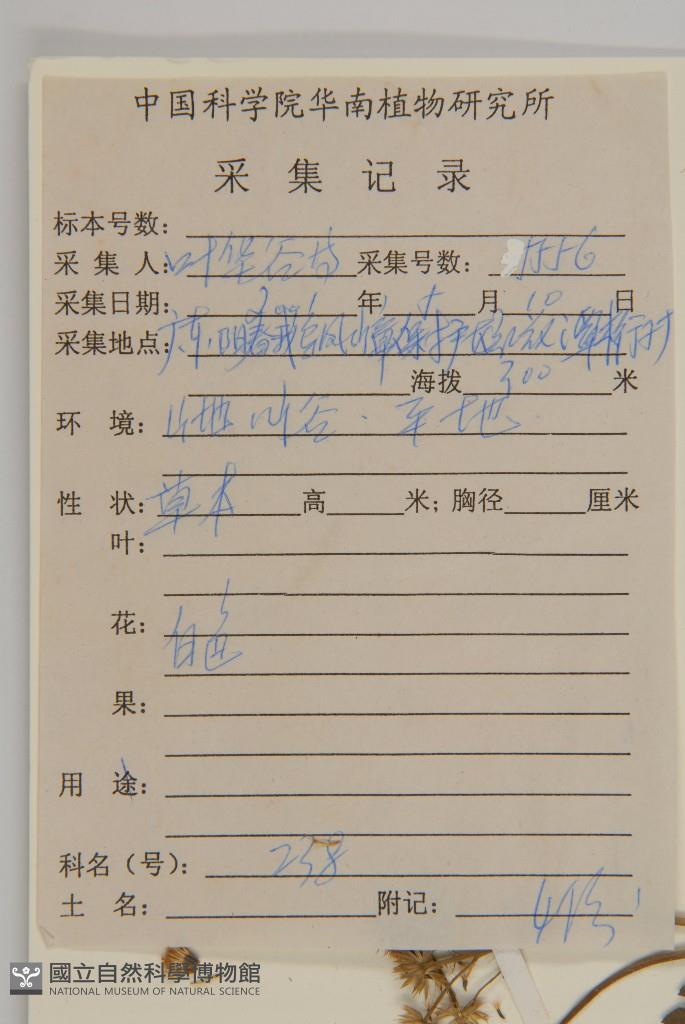 中国科学院华南植物研究所
采集记录
标本号数：
采集人：叶华谷 采集号数：
采集日期：2001年 月10日
采集地点：广东·阳春 保护区
海拨300米
环境： 地 山谷·平地
性状：草本 高 米；胸径 厘米
叶：
花：
白色
果：
用途：
科名（号）：238
土名： 附记：
國立自然科學博物館
NATIONAL MUSEUM OF NATURAL SCIENCE